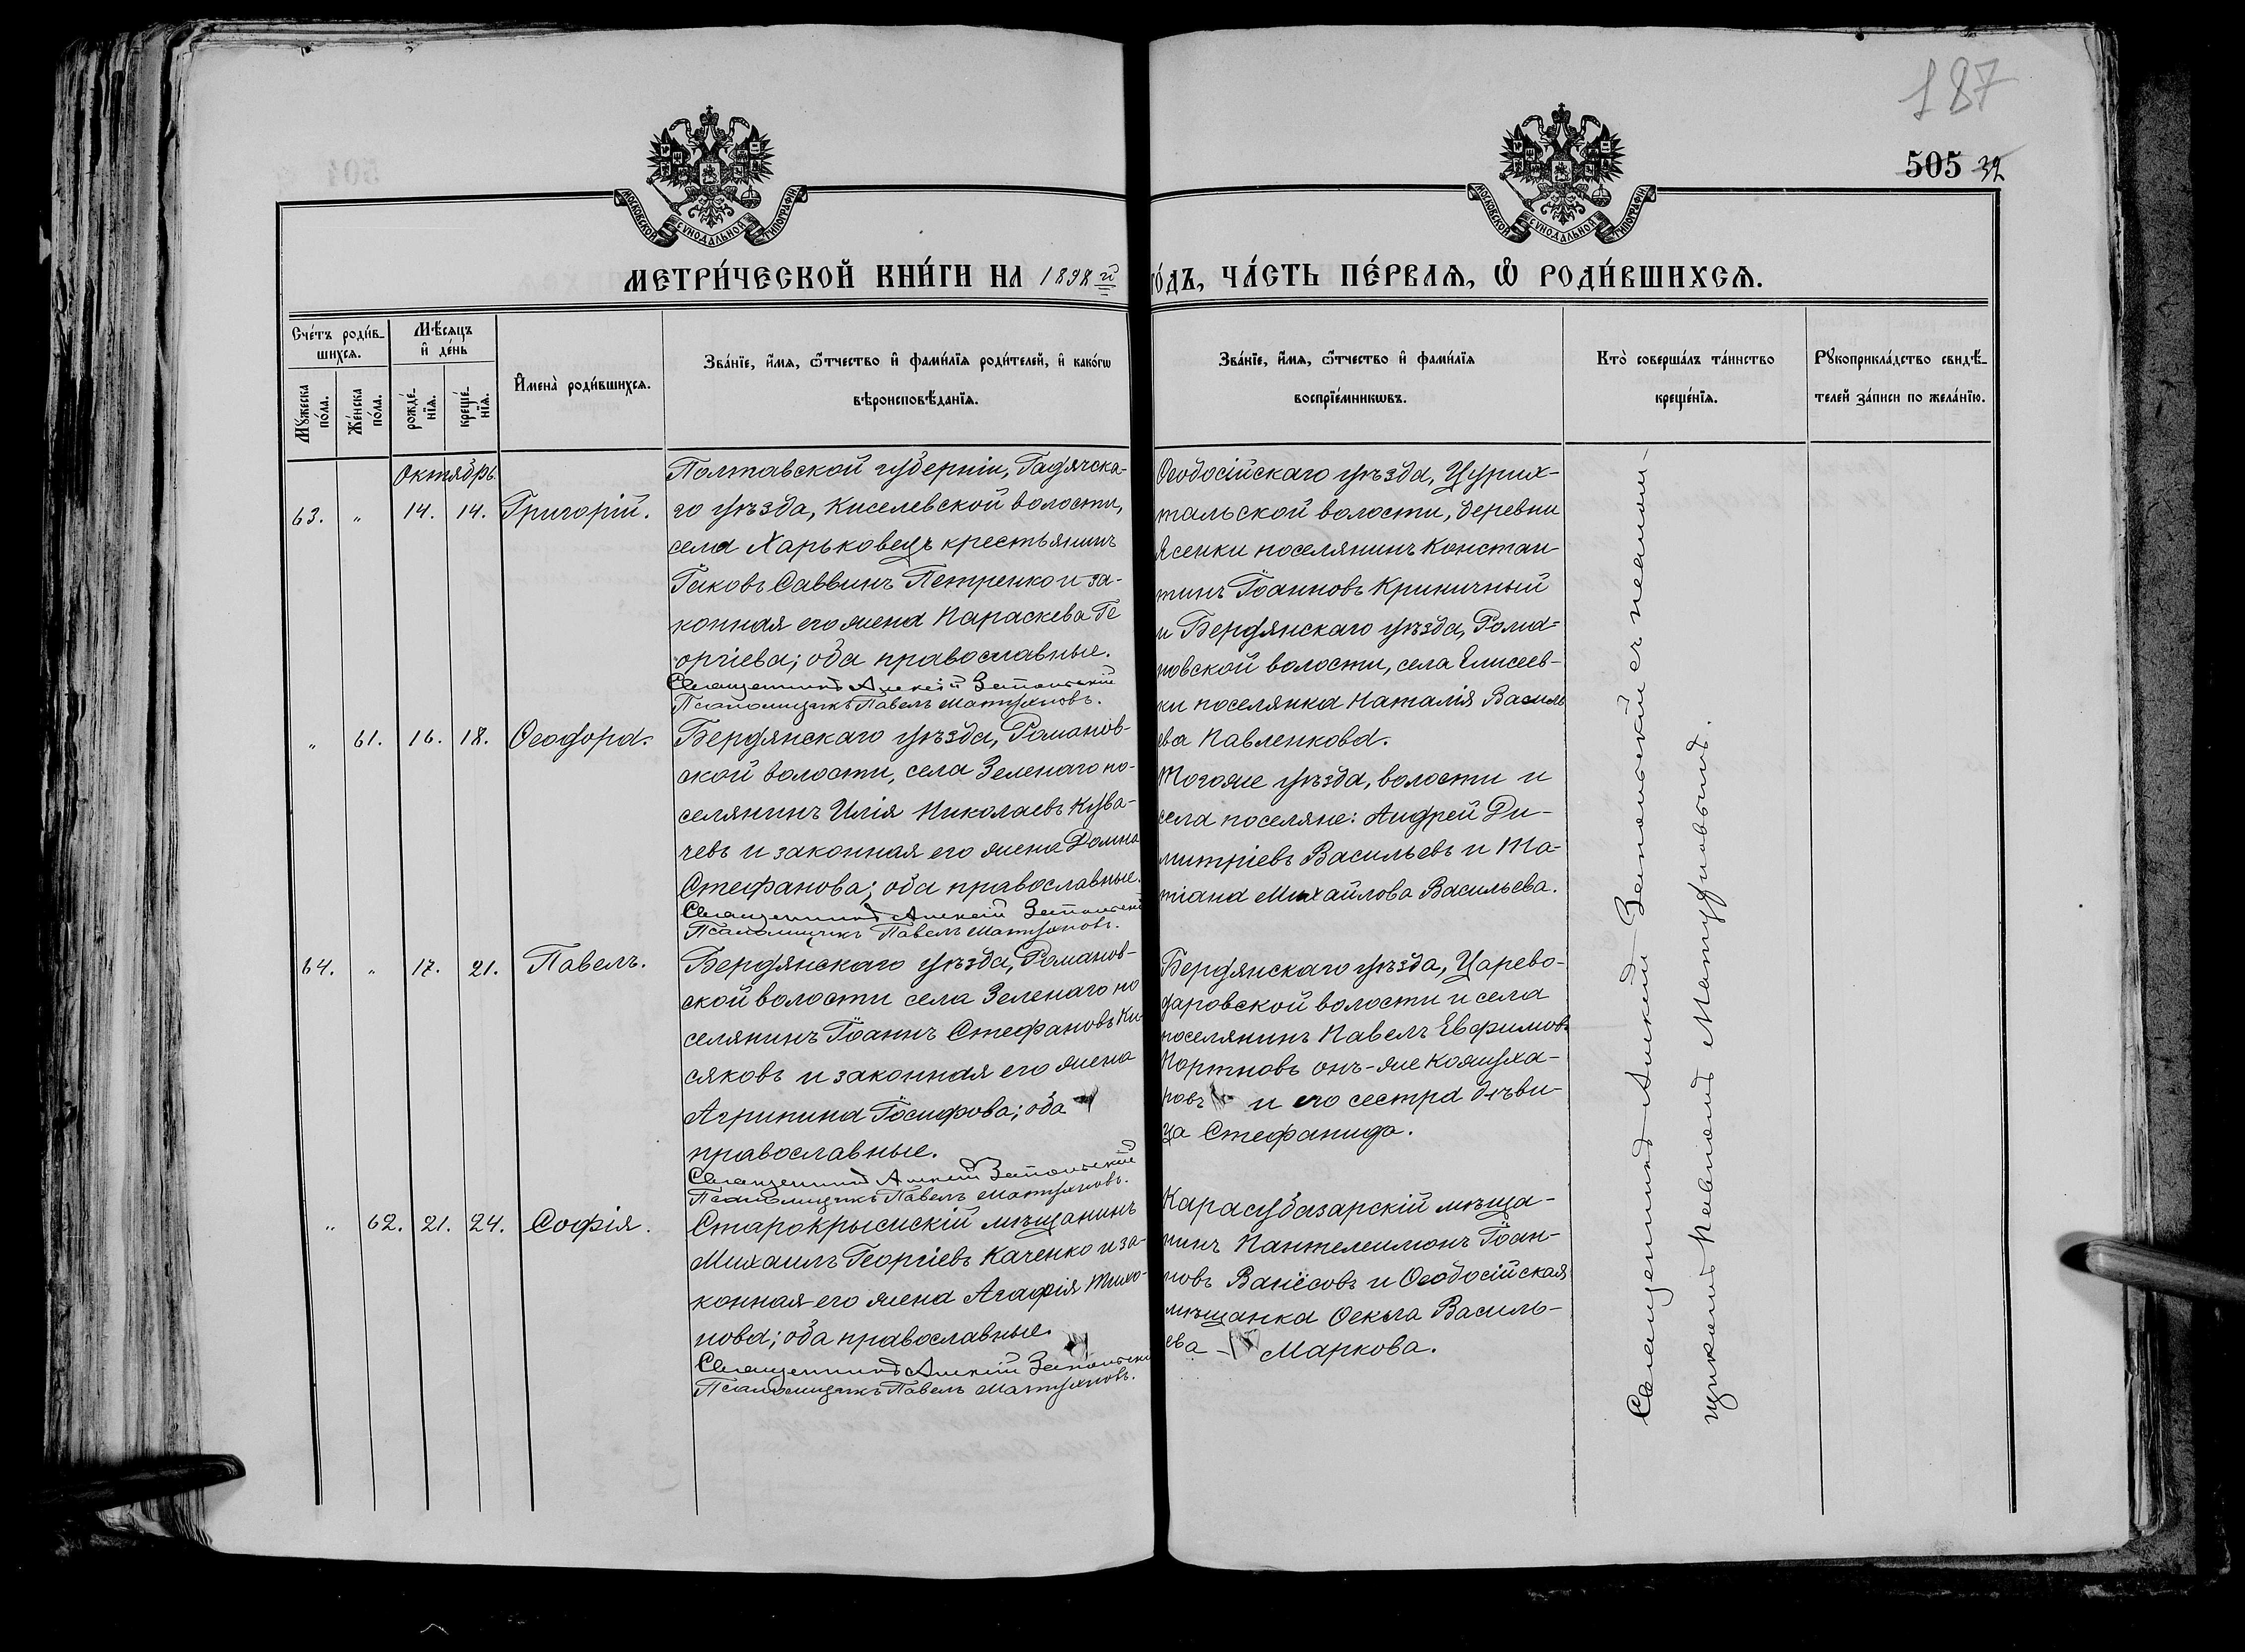 187
505 32
МОСКОВСКОЙ СѴНОДАЛЬНОЙ ТИПОГРАФІИ
МОСКОВСКОЙ СѴНОДАЛЬНОЙ ТИПОГРАФІИ
МЕТРИ́ЧЕСКОЙ КНИ́ГИ НА 1898 й
го́дъ, ЧА́СТЬ ПЕ́РВАѦ, Ѽ РОДИ́ВШИХСѦ.
Сче́тъ роди́в-
шихсѧ.
Мꙋ́жеска по́ла.
Же́нска по́ла.
Мѣ́сѧцъ
и҆ де́нь
рожде́-
нїѧ.
креще́-
нїѧ.
И҆мена̀ роди́вшихсѧ.
Зва́нїе, и҆́мѧ, ѻ҆́тчество и҆ фами́лїѧ роди́телей, и҆ како́гѡ
вѣроисповѣ́данїѧ.
Зва́нїе, и҆́мѧ, ѻ҆́тчество и҆ фами́лїѧ
воспрїе́мникѡвъ.
Кто̀ соверша́лъ та́инство
креще́нїѧ.
Рꙋкоприкла́дство свидѣ́-
телей за́писи по жела́нїю.
Октябрь
63. „ 14. 14. Григорій.
Полтавской губерніи, Гадячска-
го уѣзда, Киселевской волости,
села Харьковецъ крестьянинъ
Іаковъ Саввинъ Петренко и за-
конная его жена Параскева Ге
оргіева; оба православные.
Священникъ Алексій Запольскій
Псаломщикъ Павелъ Матуяновъ.
Ѳеодосійскаго уѣзда, Цурих-
тальской волости, деревни
Ясенки поселянинъ Констан
тинъ Іоанновъ Криничный
и Бердянскаго уѣзда, Рома=
новской волости, села Елисеев-
ки поселянка Наталія Василь
ева Павленкова.
„ 61. 16. 18. Ѳеодора.
Бердянскаго уѣзда, Романов-
ской волости, села Зеленаго по-
селянинъ Илія Николаевъ Кува-
чевъ и законная его жена Домна
Стефанова; оба православные.
Священникъ Алексій Запольскій
Псаломщикъ Павелъ Матуяновъ.
Тогоже уѣзда, волости и
села поселяне: Андрей Ди-
митріевъ Васильевъ и Та-
тіана Михайлова Васильева.
64. „ 17. 21. Павелъ.
Бердянскаго уѣзда, Романов-
ской волости села Зеленаго по
селянинъ Іоаннъ Стефановъ Ки-
сяковъ и законная его жена
Агрипина Іосифова; оба
православные.
Священникъ Алексій Запольскій
Псаломщикъ Павелъ Матуяновъ.
Бердянскаго уѣзда, Царево-
даровской волости и села
поселянинъ Павелъ Евфимовъ
Портновъ онъ-же Кожуха-
ровъ и его сестра дѣви-
ца Стефанида.
„ 62. 21. 24. Софія.
Старокрымскій мѣщанинъ
Михаилъ Георгіевъ Каченко и за-
конная его жена Агафія Тихо-
нова; оба православные.
Священникъ Алексій Запольскій
Псаломщикъ Павелъ Матуяновъ.
Карасубазарскій мѣща-
нинъ Пантелеимонъ Іоан-
новъ Ванёсовъ и Ѳеодосійская
мѣщанка Ѳекла Василь-
ева - Маркова.
Священникъ Алексій Запольскій съ псалом-
щикомъ Павломъ Матуяновымъ.